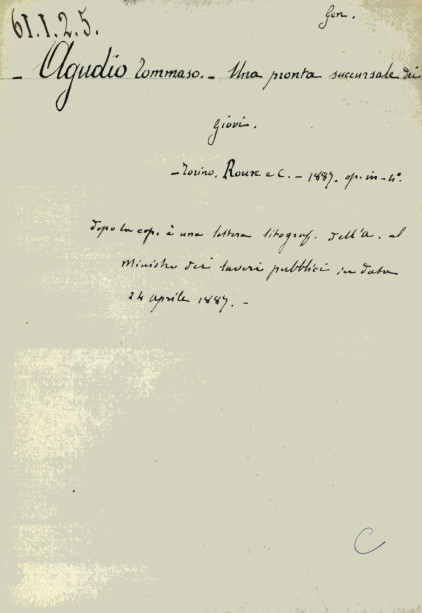 61.1.2.5.
Gen.
- Agudio Tommaso. - Una pronta succursale dei
Giovi.
- Torino. Roux e C. - 1887. op. in-4°.
Dopo la cop. è una lettera litograf. dell'A. al
Ministro dei lavori pubblici in data
24 aprile 1887. -
C